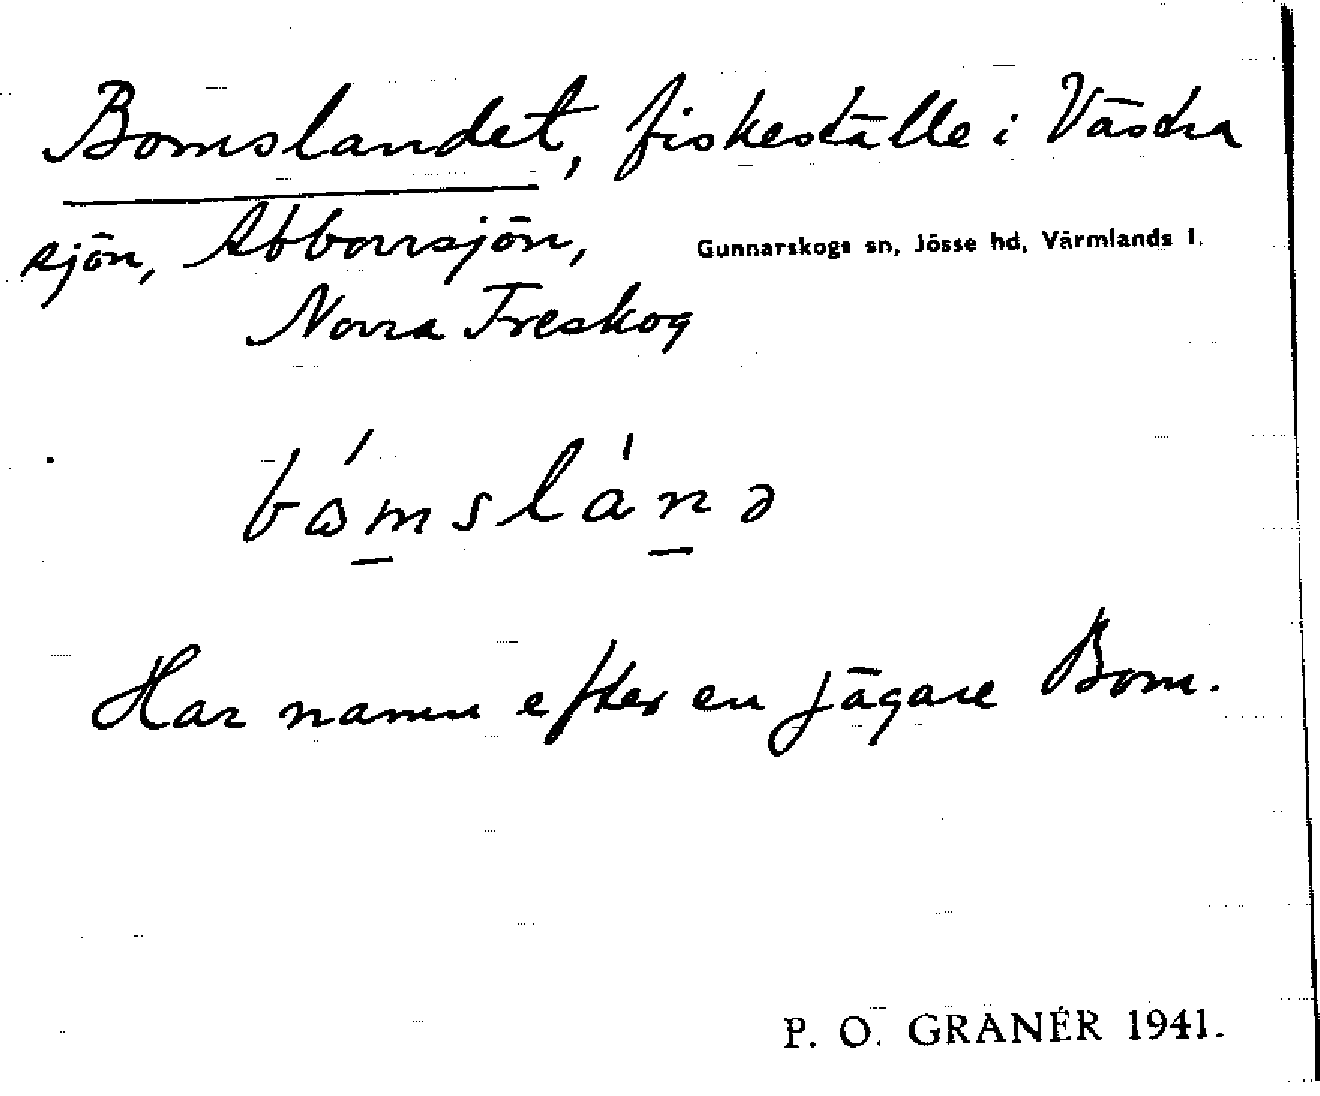 Bomslandet, fiskeställe i Västra
sjön, Abborrsjön,
Gunnarskogs sn, Jösse hd, Värmlands l.
Norra Treskog
Har namn efter en jägare Bom.
P. O. GRANÉR 1941.